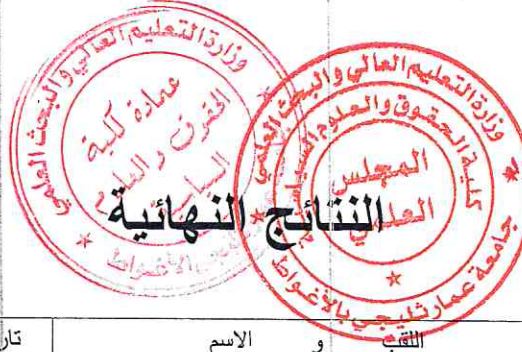 وزارة التعليم العالي والبحث العلمي
عمادة كلية
الحقوق والعلوم
السياسية
وزارة التعليم العالي والبحث العلمي
كلية الحقوق والعلوم السياسية
المجلس
العلمي
جامعة عمار ثليجي بالأغواط
النتائج النهائية
اللقب و الاسم